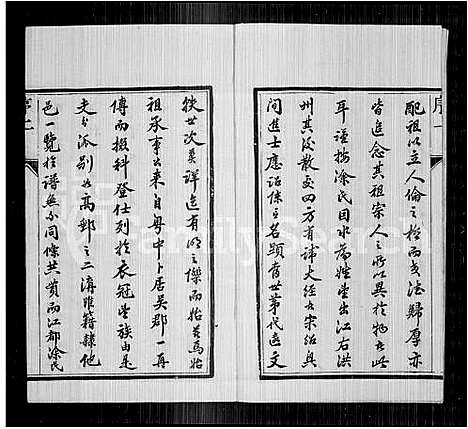 配祖以立人倫之極而夷法歸厚亦
皆追念其祖宗人之所以異於物者此
耳謹按涂氏因水為姓望出江右洪
州其後散處四方有諱大經者宋紹興
間進士應詔條之名顯當世第代遠文
佚世次莫詳迨有明之際而始遷焉始
祖承事公來自粤中卜居吴郡一再
傳而掇科登仕列於衣冠望族由是
支分派別如高郵之二濟睢籍隸他
邑一覽於譜無不同條共貫而江都涂氏
序一
序二
FamilySearch